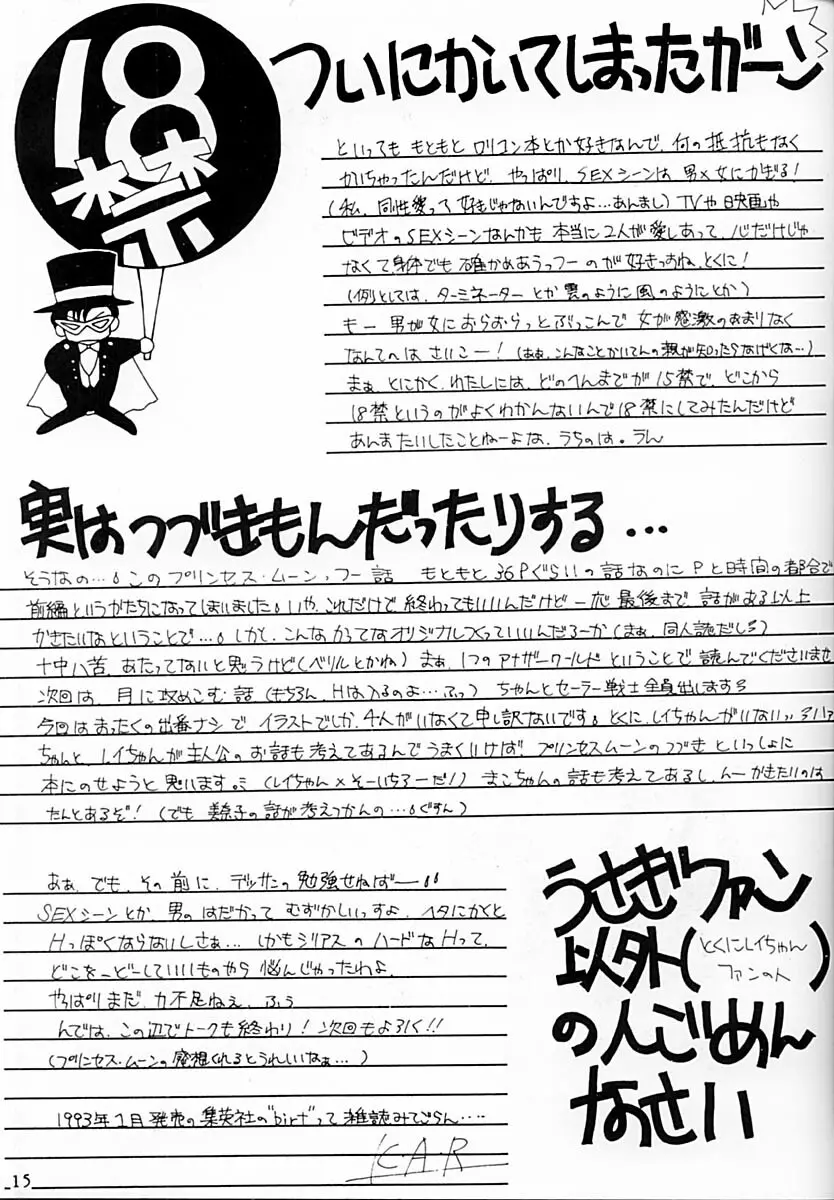 18禁
ついにかいてしまったガーン
といっても もともと ロリコン本とか好きなんで、何の抵抗もなく
かいちゃったんだけど、やっぱり、SEXシーンは 男×女にかぎる!
(私、同性愛って 好きじゃないんですよ…あんまし) TVや映画や
ビデオのSEXシーンなんかも 本当に2人が愛しあって、心だけじゃ
なくて身体でも 確かめあうっつーのが好きっすね、とくに!
(例としては、ターミネーターとか 雲のように風のようにとか)
もー 男が女におらおらっとぶっこんで 女が感激のあまりなく
なんてのは さいこー! (ああ、こんなことかいてんの親が知ったらなげくな…)
まぁ、とにかく、わたしには、どのへんまでが15禁で、どこから
18禁というのがよくわかんないんで18禁にしてみたんだけど
あんまたいしたことねーよな、うちのは。うん
実はつづきもんだったりする…
そうなの…。このプリンセス・ムーンっつー話 もともと36Pぐらいの話なのにPと時間の都合で
前編というかたちになってしまいました。いや、これだけで終わってもいいんだけど一応最後まで話がある以上
かきたいなということで…。しかし、こんなかってなオリジナルつくっていいんだろーか(まぁ、同人誌だしろ)
十中八苦、あたってないと思うけど(ベリルとかね) まぁ、1つのアナザーワールドということで読んでくださいませ
次回は、月に攻めこむ話(もちろん、Hは入るのよ…ふっ) ちゃんとセーラー戦士全員出します
今回はまったくの出番ナシで イラストでしか、4人がいなくて申し訳ないです。とくに、レイちゃんがいない
ちゃんと、レイちゃんが主人公のお話も考えてあるんでうまくいけば、プリンセスムーンのつづきといっしょに
本にのせようと思います。(レイちゃん×そーいちろーだ!) まこちゃんの話も考えてあるし、んーかきたいのは
たんとあるぞ! (でも 美奈子の話が考えつかんの…。ぐすん)
あぁ、でも、その前に、デッサンの勉強せねばー
SEXシーンとか、男のはだかって むずかしいっすよ、ヘタにかくと
Hっぽくならないしさぁ… しかもシリアスのハードなHって、
どこをーどーしていいものやら 悩んじゃったわよ、
やっぱりまだ、力不足ねぇ、ふぅ
んでは、この辺でトークも終わり! 次回もよろしく!!
(プリンセス・ムーンの感想くれるとうれしいなぁ…)
1993年1月発売の集英社の“birt”って雑誌みてごらん….
K.A.R
うさぎファン
以外(とくにレイちゃんファンの人)
の人ごめん
なさい
15